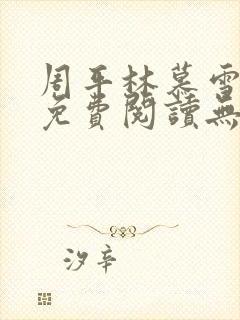 周平林慕雪
免費閱讀無
汐辛